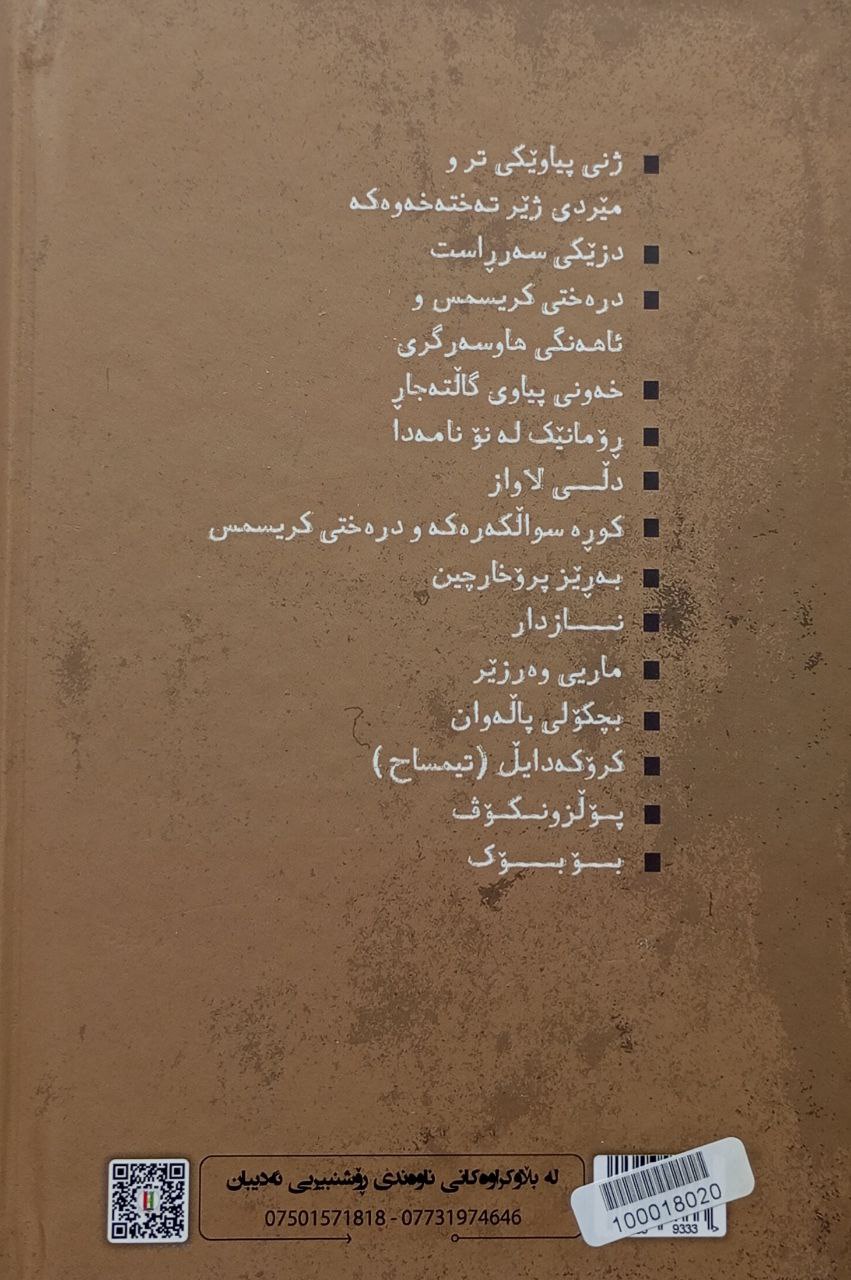 ■ ژنی پیاوێکی تر و
مێردی ژێر تەختەخەوەکە
■ دزێکی سەرڕاست
■ درەختی کریسمس و
ئاهەنگی هاوسەرگری
■ خەونی پیاوی گاڵتەجاڕ
■ ڕۆمانێک لە نۆ نامەدا
■ دڵی لاواز
■ کوڕە سواڵکەرەکە و درەختی کریسمس
■ بەڕێز پرۆخارچین
■ نازدار
■ ماریی وەرزێر
■ بچکۆلی پاڵەوان
■ کرۆکەدایڵ (تیمساح)
■ پۆڵزونکۆڤ
■ بۆبۆک
لە بڵاوکراوەکانی ناوەندی ڕۆشنبیریی ئەدیبان
07501571818 - 07731974646
100018020
9333